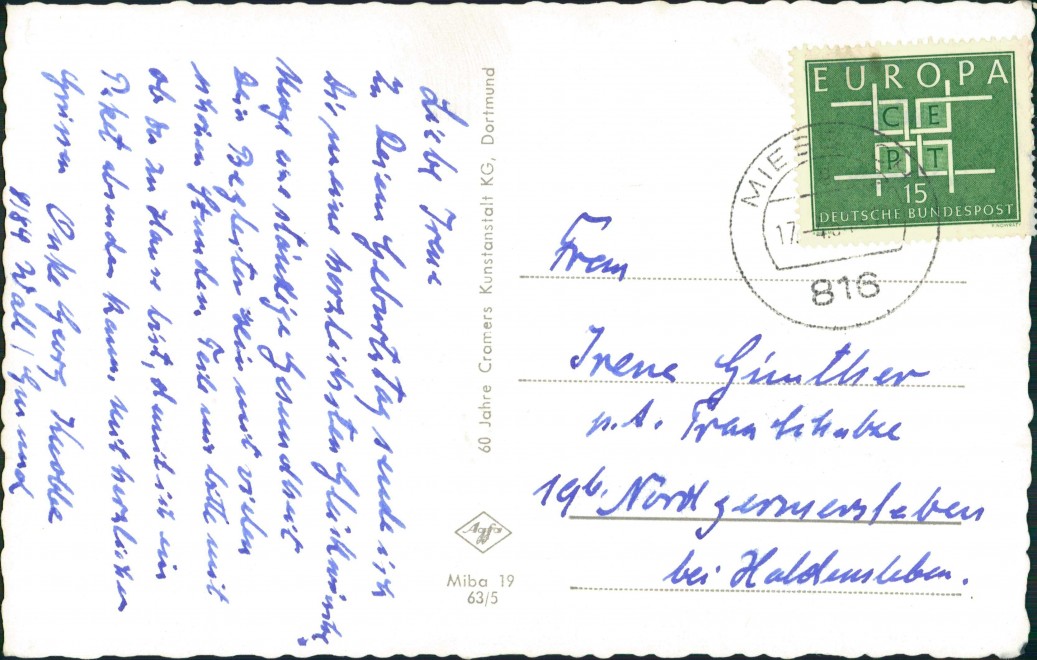 Liebe Irene
Zu Deinem Geburtstag sende ich
Dir meine herzlichsten Glückwünsche.
Möge eine ständige Gesundheit
Dein Begleiter sein mit vielen
schönen Stunden. Teile mir bitte mit
ob Du zu Hause bist, damit ich ein
Paket absenden kann, mit herzlichen
Grüssen Onkel Georg
8184 Wall / Gmund
60 Jahre Cramers Kunstanstalt KG, Dortmund
Agfa
Miba 19
63/5
EUROPA
CE
PT
15
DEUTSCHE BUNDESPOST
MIES
17.
816
Frau
Irene Günther
p.A. Frau Schulze
19b Nordgermersleben
bei Haldensleben.